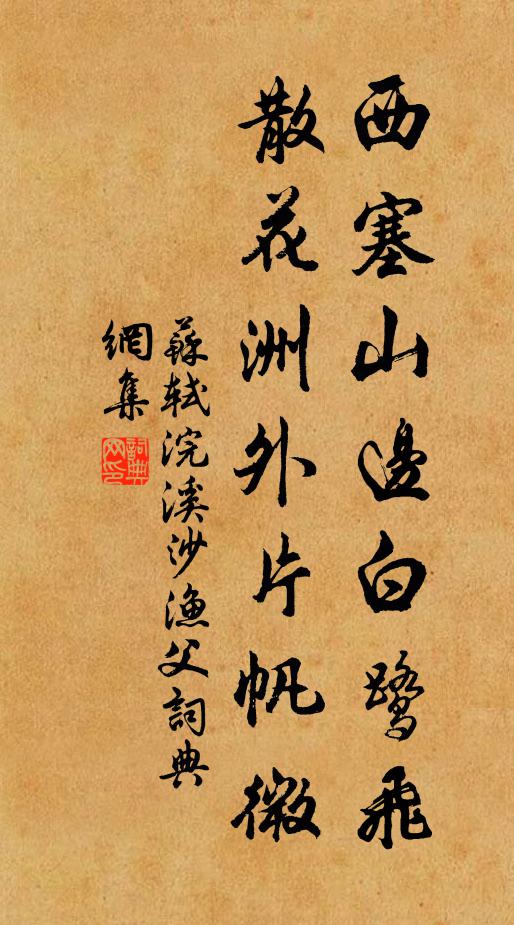 西塞山邊白鷺飛
散花洲外片帆微
蘇軾浣溪沙漁父詞典
網集
詞典網印